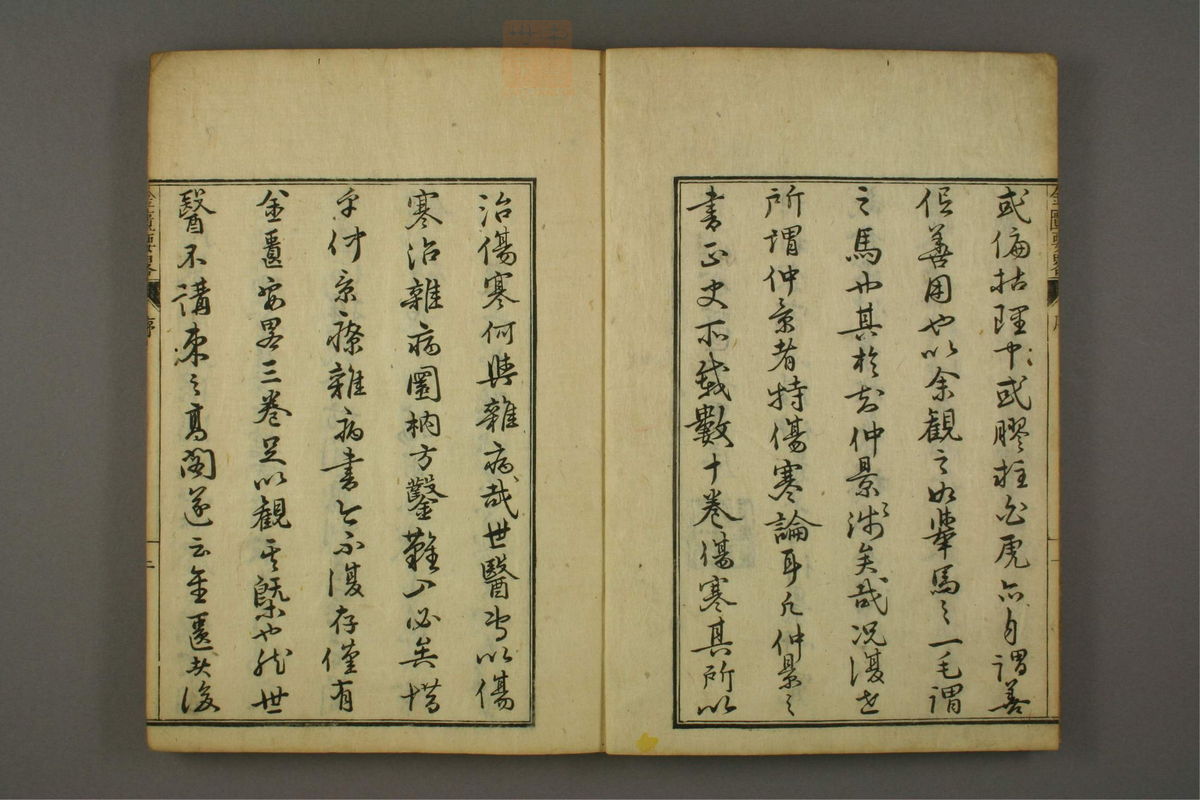 金匱要畧 序
或偏拈理中或膠柱白虎亦自謂善
善用也以余觀之如舉馬之一毛謂
之馬也其於知仲景淺矣哉況復世
所謂仲景者特傷寒論耳凡仲景之
書正史所載數十卷傷寒其所以
治傷寒何與雜病哉世醫以傷
寒治雜病圓枘方鑿難入必矣惜
乎仲景療雜病書今不復存僅有
金匱要畧三卷足以觀其槩也然世
醫不講束之高閣遂云金匱後
金匱要畧 序 二